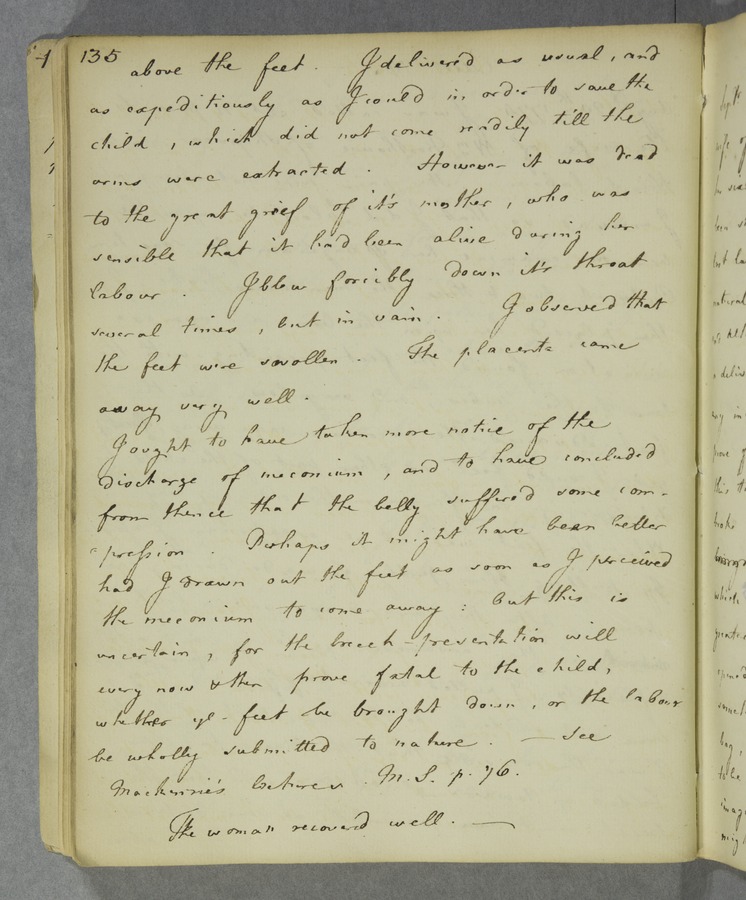 135
above the feet. I deliver'd as usual, and
as expeditiously as I could in order to save the
child, which did not come readily till the
arms were extracted. However it was dead
to the great grief of it's mother, who was
sensible that it had been alive during her
labour. I blew forcibly down it's throat
several times, but in vain. I observed that
the feet were swollen. The placenta came
away very well.
I ought to have taken more notice of the
discharge of meconium, and to have concluded
from thence that the belly suffered some com-
pression. Perhaps it might have been better
had I drawn out the feet as soon as I perceived
the meconium to come away: but this is
uncertain, for the breech-presentation will
every now & then prove fatal to the child,
whether ye feet be brought down, or the labour
be wholly submitted to nature. — See
Mackenzie's Lectures M.S. p. 76.
The woman recover'd well. —